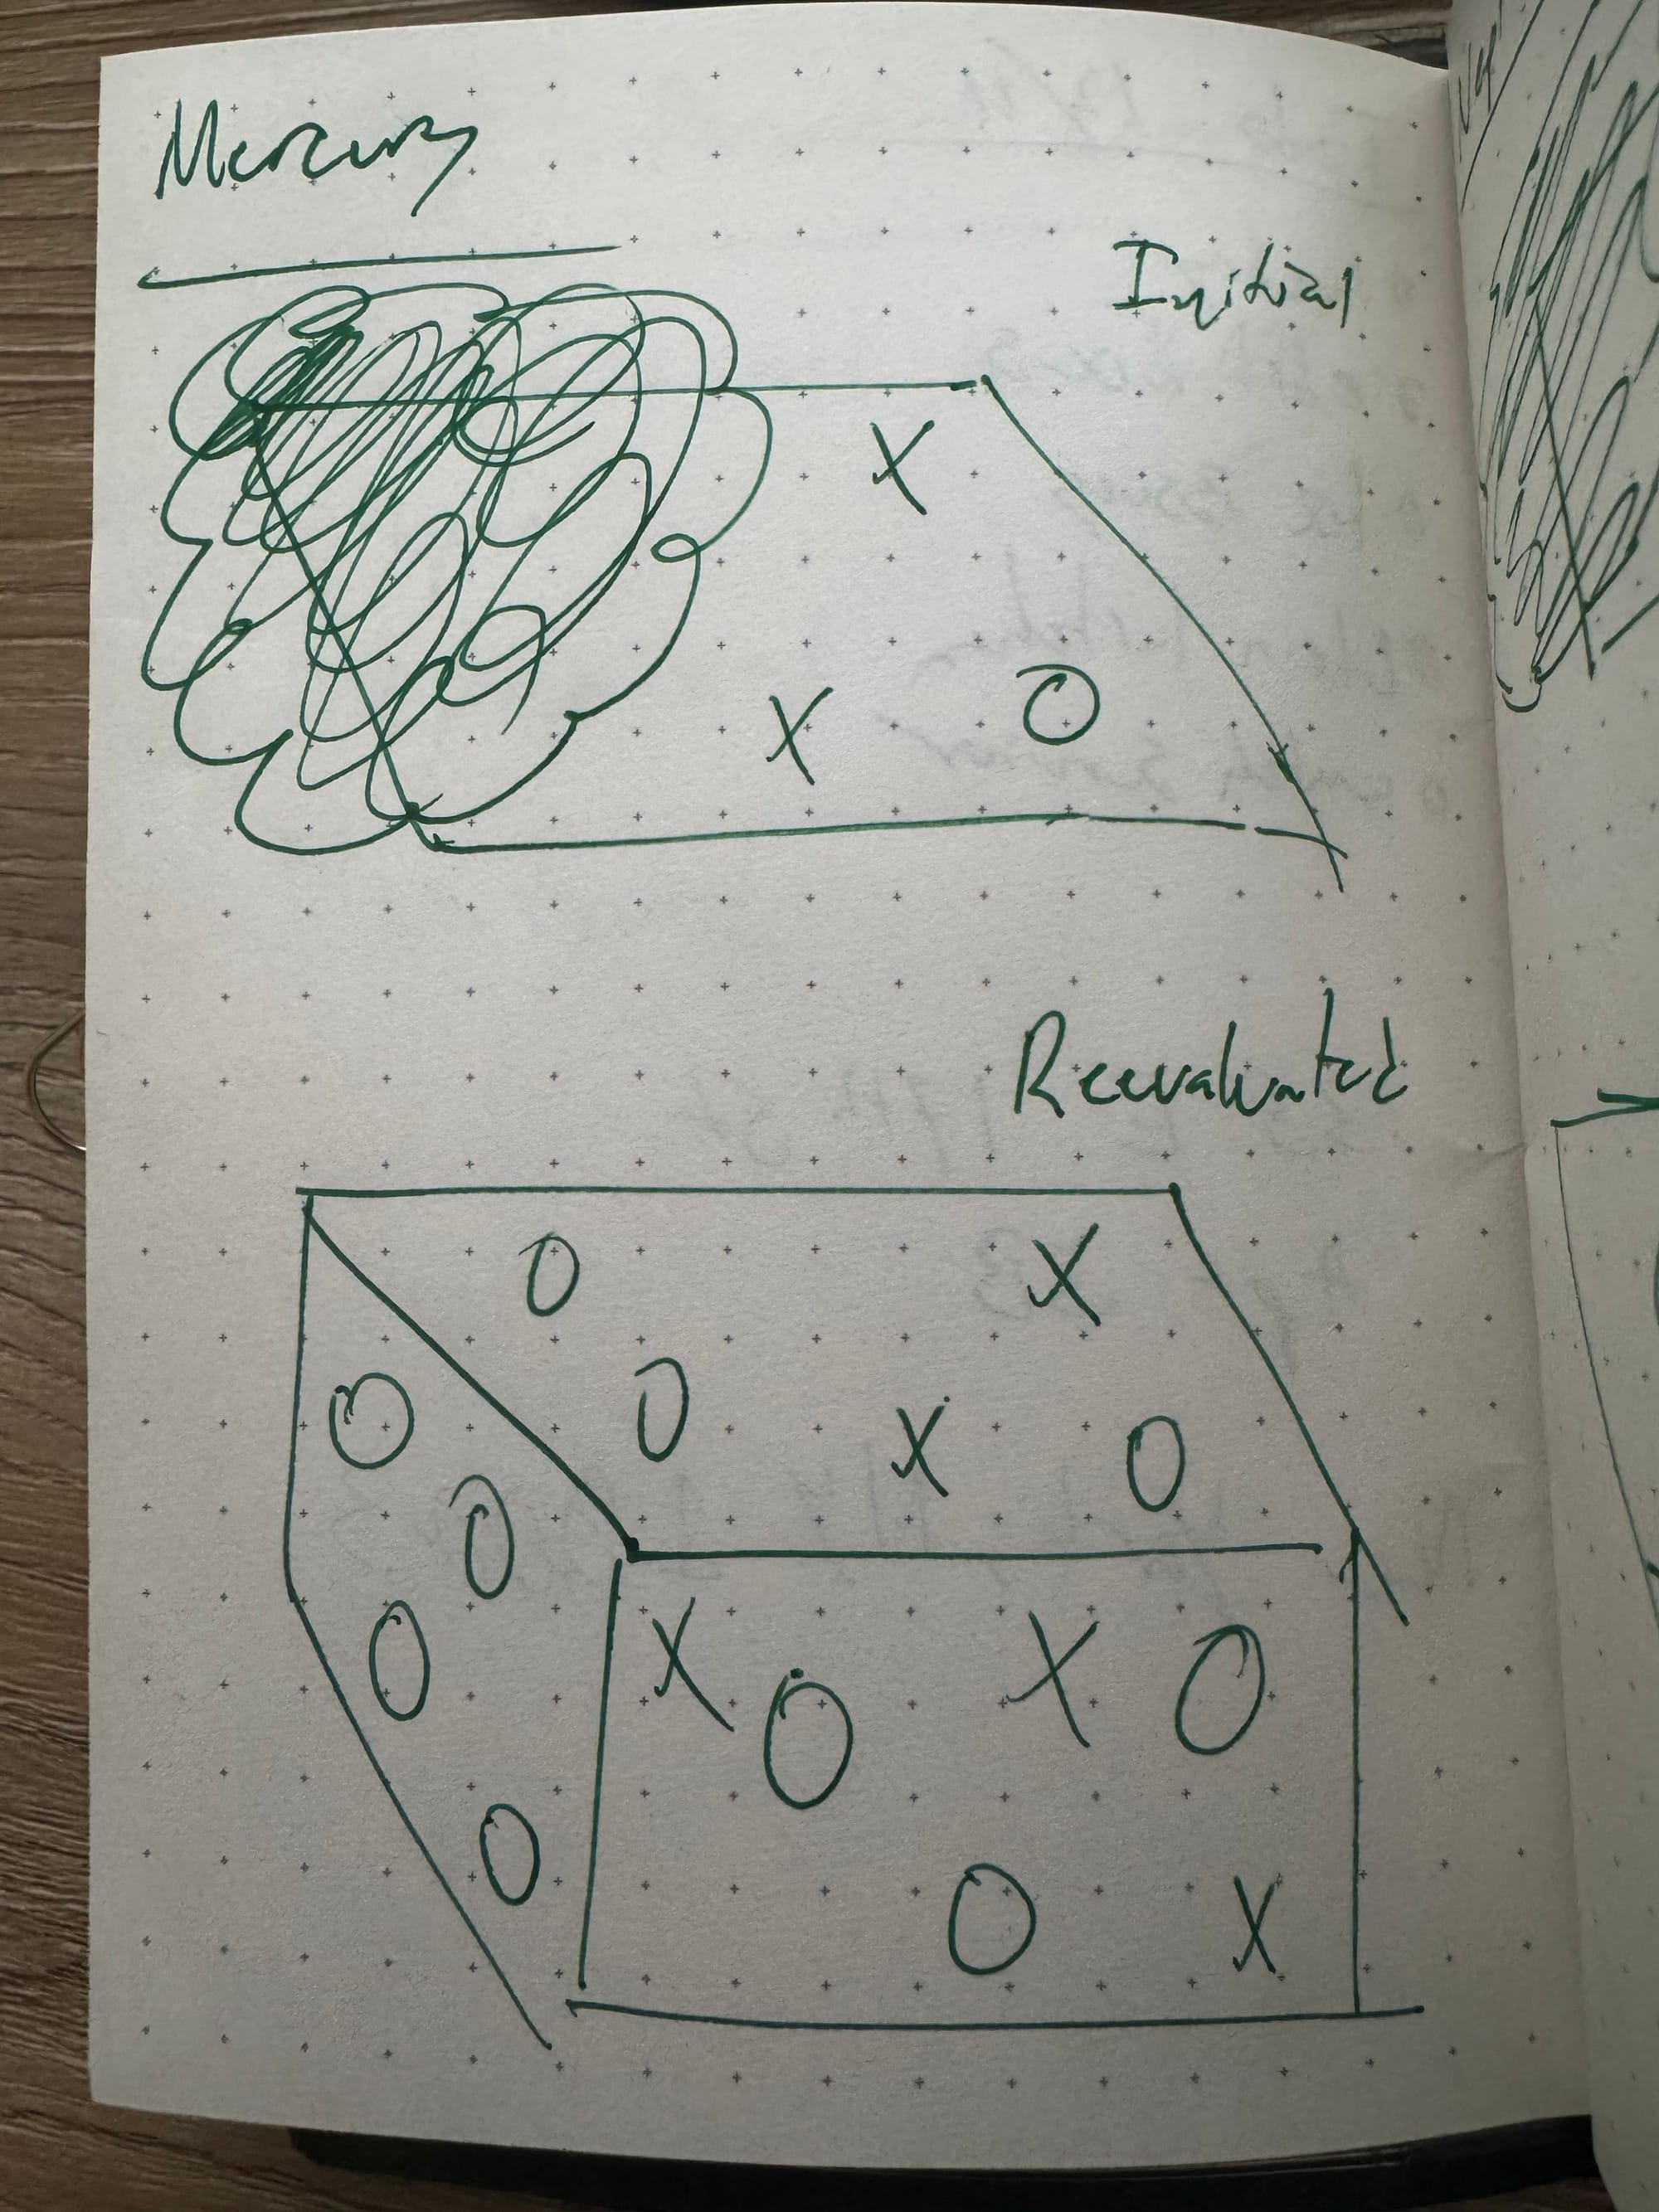 Mercury
Initial
X
X O
Reevaluated
O X
O X O
O
O
O
O
X O X O
O X